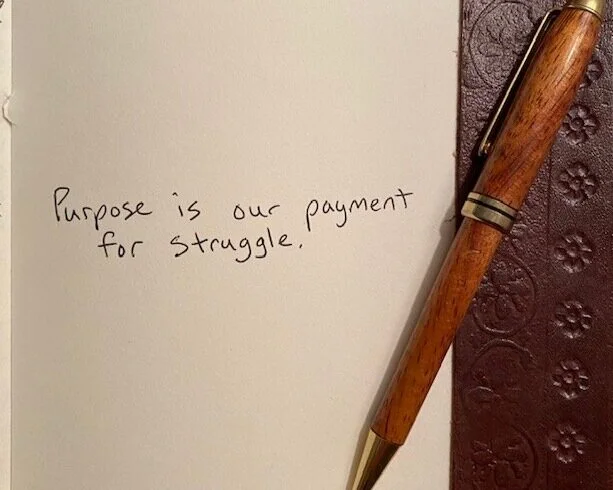 Purpose is our payment
for struggle.